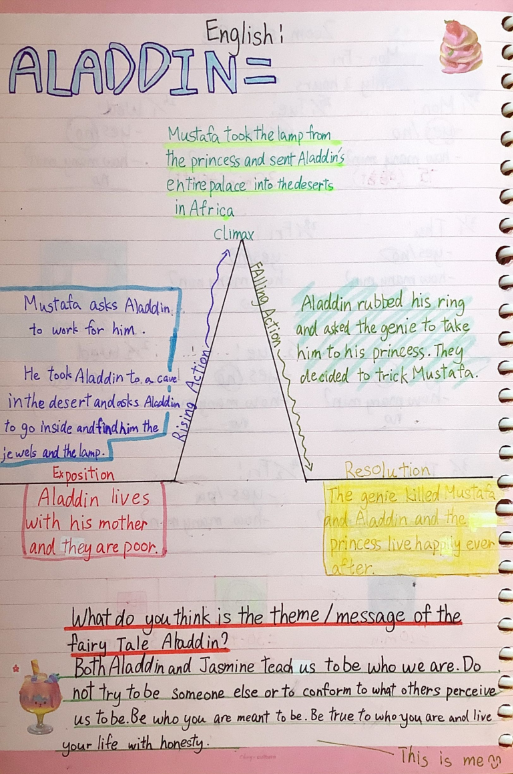 English:
ALADDIN=
Mustafa took the lamp from
the princess and sent Aladdin's
entire palace into the deserts
in Africa
Climax
Rising Action
Falling Action
Mustafa asks Aladdin
to work for him.
He took Aladdin to a cave
in the desert and asks Aladdin
to go inside and find him the
jewels and the lamp.
Aladdin rubbed his ring
and asked the genie to take
him to his princess. They
decided to trick Mustafa.
Exposition
Aladdin lives
with his mother
and they are poor.
Resolution
The genie killed Mustafa
and Aladdin and the
princess live happily ever
after.
What do you think is the theme/message of the
fairy Tale Aladdin?
Both Aladdin and Jasmine teach us to be who we are. Do
not try to be someone else or to conform to what others perceive
us to be. Be who you are meant to be. Be true to who you are and live
your life with honesty.
This is me